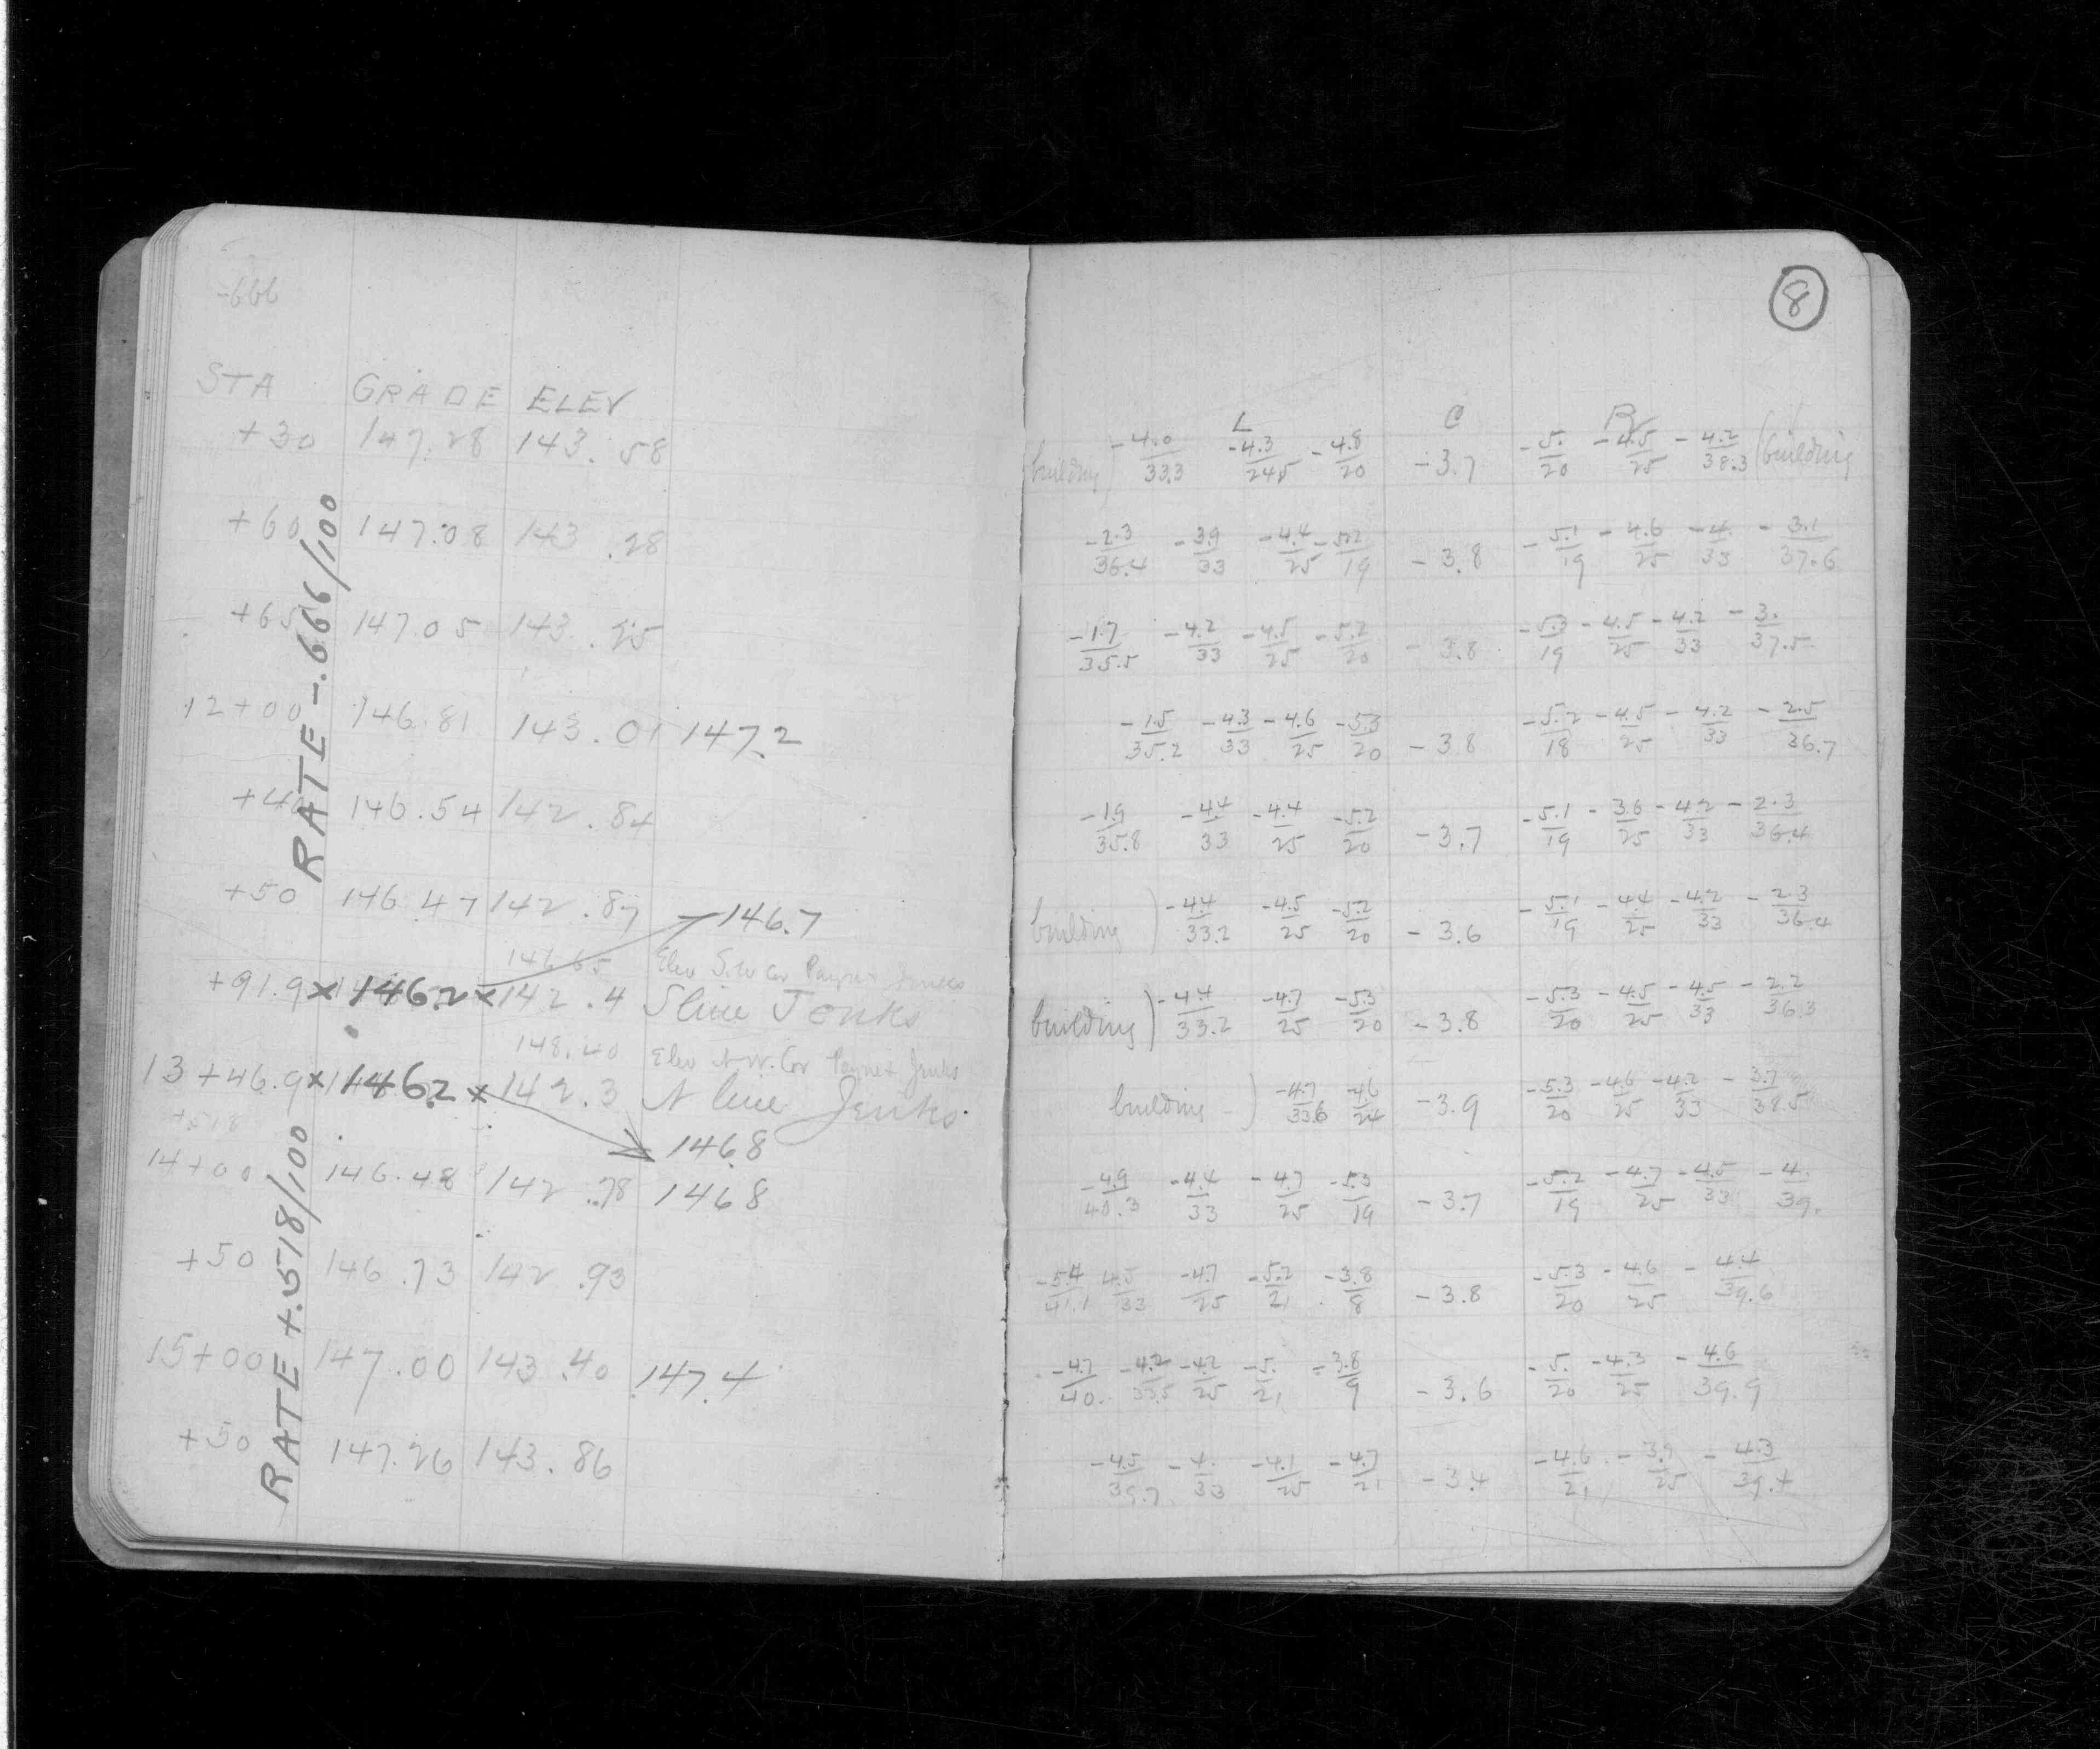 -666
STA GRADE ELEV
+30 147.28 143.58
+60 147.08 143.28
+65 147.05 143.25
12+00 146.81 143.01 147.2
+40 146.54 142.84
+50 146.47 142.87 146.7
146.65 Elev S.W Cor Payne + Jenks
+91.9 x 146.2 x 142.4 S line Jenks
148.40 Elev N.W. Cor Payne + Jenks
13+46.9 x 146.2 x 142.3 N line Jenks
+518
146.8
14+00 146.48 142.78 146.8
+50 146.73 142.93
15+00 147.00 143.40 147.4
+50 147.26 143.86
RATE -.666/100
RATE +.518/100
8
L C R
building) -4.0/33.3 -4.3/24.5 -4.8/20 -3.7 -5./20 -4.5/25 -4.2/38.3 (building
-2.3/36.4 -3.9/33 -4.4/25 -5.2/19 -3.8 -5.1/19 -4.6/25 -4./33 -3.1/37.6
-1.7/35.5 -4.2/33 -4.5/25 -5.2/20 -3.8 -5.3/19 -4.5/25 -4.2/33 -3./37.5
-1.5/35.2 -4.3/33 -4.6/25 -5.3/20 -3.8 -5.2/18 -4.5/25 -4.2/33 -2.5/36.7
-1.9/35.8 -4.4/33 -4.4/25 -5.2/20 -3.7 -5.1/19 -3.6/25 -4.2/33 -2.3/36.4
building) -4.4/33.2 -4.5/25 -5.2/20 -3.6 -5.1/19 -4.4/25 -4.2/33 -2.3/36.4
building) -4.4/33.2 -4.7/25 -5.3/20 -3.8 -5.3/20 -4.5/25 -4.5/33 -2.2/36.3
building) -4.7/33.6 -4.6/24 -3.9 -5.3/20 -4.6/25 -4.2/33 -3.7/38.5
-4.9/40.3 -4.4/33 -4.7/25 -5.3/19 -3.7 -5.2/19 -4.7/25 -4.5/33 -4./39.
-5.4/41.1 4.5/33 -4.7/25 -5.2/21 -3.8/8 -3.8 -5.3/20 -4.6/25 -4.4/39.6
-4.7/40. -4.2/33.5 -4.2/25 -5./21 -3.8/9 -3.6 -5./20 -4.3/25 -4.6/39.9
-4.5/39.7 -4./33 -4.1/25 -4.7/21 -3.4 -4.6/21 -3.9/25 -4.3/39.4